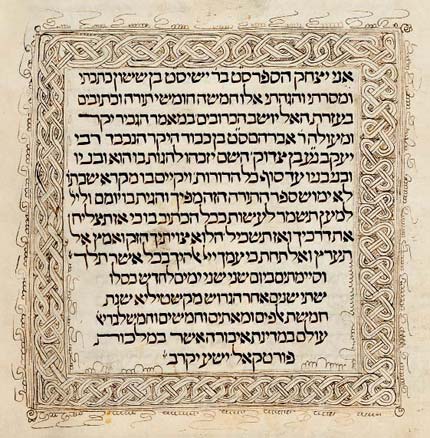 אני יצחק הספר סט בר ישי סט בן ששון כתבתי
ומסרתי והגהתי אלו חמשה חומשי תורה וכתובים
בעזרת האל יושב הכרובים במאמר הגביר יקר
ומעולה ר' אברהם סט בן כבוד היקר הנכבד רבי
יעקב נ"ע בן צדוק השם יזכהו להגות בו הוא ובניו
ובני בניו עד סוף כל הדורות ויקיים בו מקרא שכתו
לא ימוש ספר התורה הזה מפיך והגית בו יומם וליל
למען תשמר לעשות ככל הכתוב בו כי אז תצליח
את דרכיך ואז תשכיל הלא צויתיך חזק ואמץ אל
תערץ ואל תחת כי עמך ייי אלהיך בכל אשר תלך
וסיימתים ביום שני שני ימים לחדש כסלו
שתי שנים אחר הגרוש מקשטיליא שנת
חמשת אלפים ומאתים וחמשים וחמש לבריא
עולם במדינת איבורה אשר במלכות
פורטקאל ישע יקרב